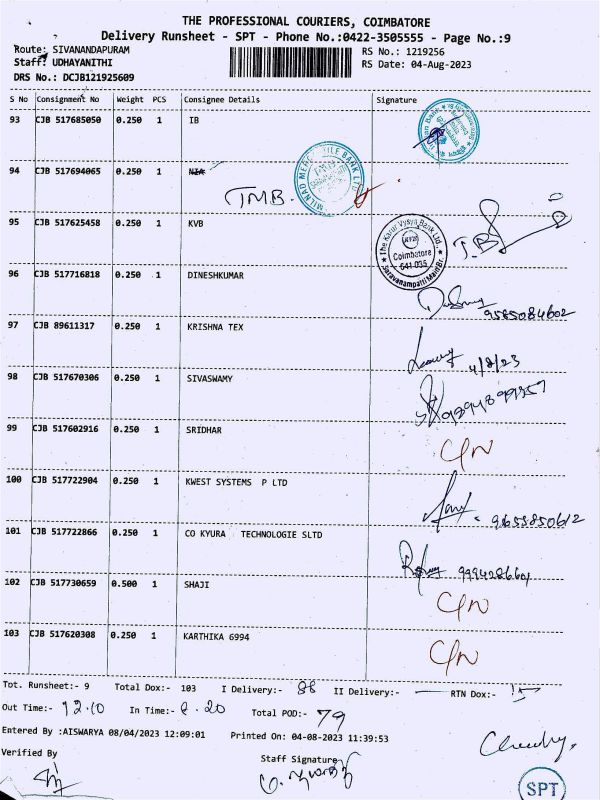 THE PROFESSIONAL COURIERS, COIMBATORE
Delivery Runsheet - SPT - Phone No.:0422-3505555 - Page No.:9
Route: SIVANANDAPURAM RS No.: 1219256
Staff: UDHAYANITHI RS Date: 04-Aug-2023
DRS No.: DCJB121925609
S No Consignment No Weight PCS Consignee Details Signature
93 CJB 517685050 0.250 1 IB
94 CJB 517694065 0.250 1
TMB.
95 CJB 517625458 0.250 1 KVB
The Karur Vysya Bank Ltd., Coimbatore 641 035 Saravanampatti Main Br.
96 CJB 517716818 0.250 1 DINESHKUMAR
9585084602
97 CJB 89611317 0.250 1 KRISHNA TEX
4/8/23
98 CJB 517670306 0.250 1 SIVASWAMY
99 CJB 517602916 0.250 1 SRIDHAR
C/N
100 CJB 517722904 0.250 1 KWEST SYSTEMS P LTD
9655850612
101 CJB 517722866 0.250 1 CO KYURA TECHNOLOGIE SLTD
102 CJB 517730659 0.500 1 SHAJI
C/N
103 CJB 517620308 0.250 1 KARTHIKA 6994
C/N
Tot. Runsheet:- 9 Total Dox:- 103 I Delivery:- 88 II Delivery:- — RTN Dox:- 15
Out Time:- 12.10 In Time:- 8.20 Total POD:- 79
Entered By :AISWARYA 08/04/2023 12:09:01 Printed On: 04-08-2023 11:39:53
Verified By Staff Signature
SPT